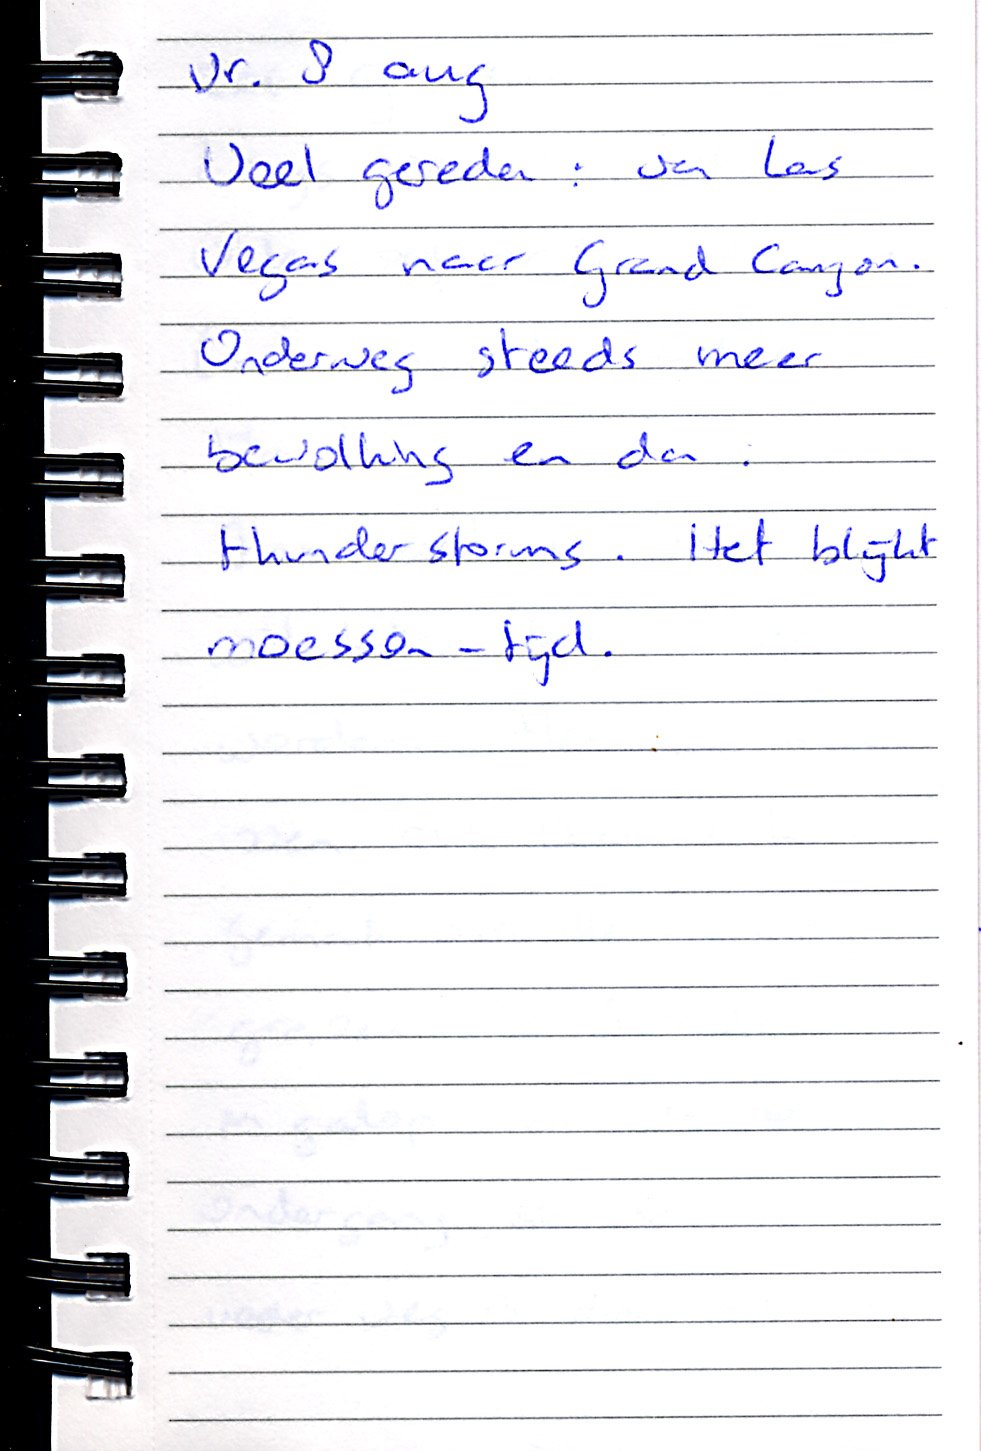 vr. 8 aug
Veel gereden : van Las
Vegas naar Grand Canyon.
Onderweg steeds meer
bewolking en dan .
thunderstorms. Het blijkt
moesson-tijd.